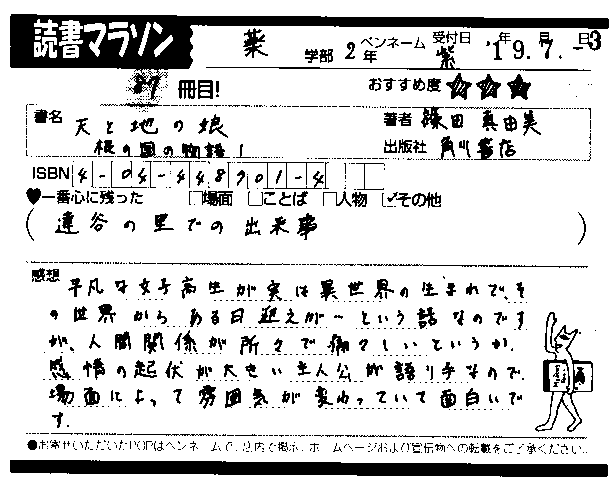 読書マラソン
薬 学部 2年 ペンネーム 紫 受付日 '19年.7月.-3日
27 冊目! おすすめ度 ☆☆☆
書名 天と地の娘 著者 篠田 真由美
根の国の物語 1 出版社 角川書店
ISBN 4-04-448901-4
♥一番心に残った □場面 □ことば □人物 ☑その他
( 蓮谷の里での出来事 )
感想
平凡な女子高生が実は異世界の生まれで、そ
の世界からある日迎えが…という話なのです
が、人間関係が所々で痛々しいというか。
感情の起伏が大きい主人公が語り手なので、
場面によって雰囲気が変わっていて面白いで
す。
●お寄せいただいたPOPはペンネームで、店内で掲示、ホームページおよび宣伝物への転載をご了承ください。